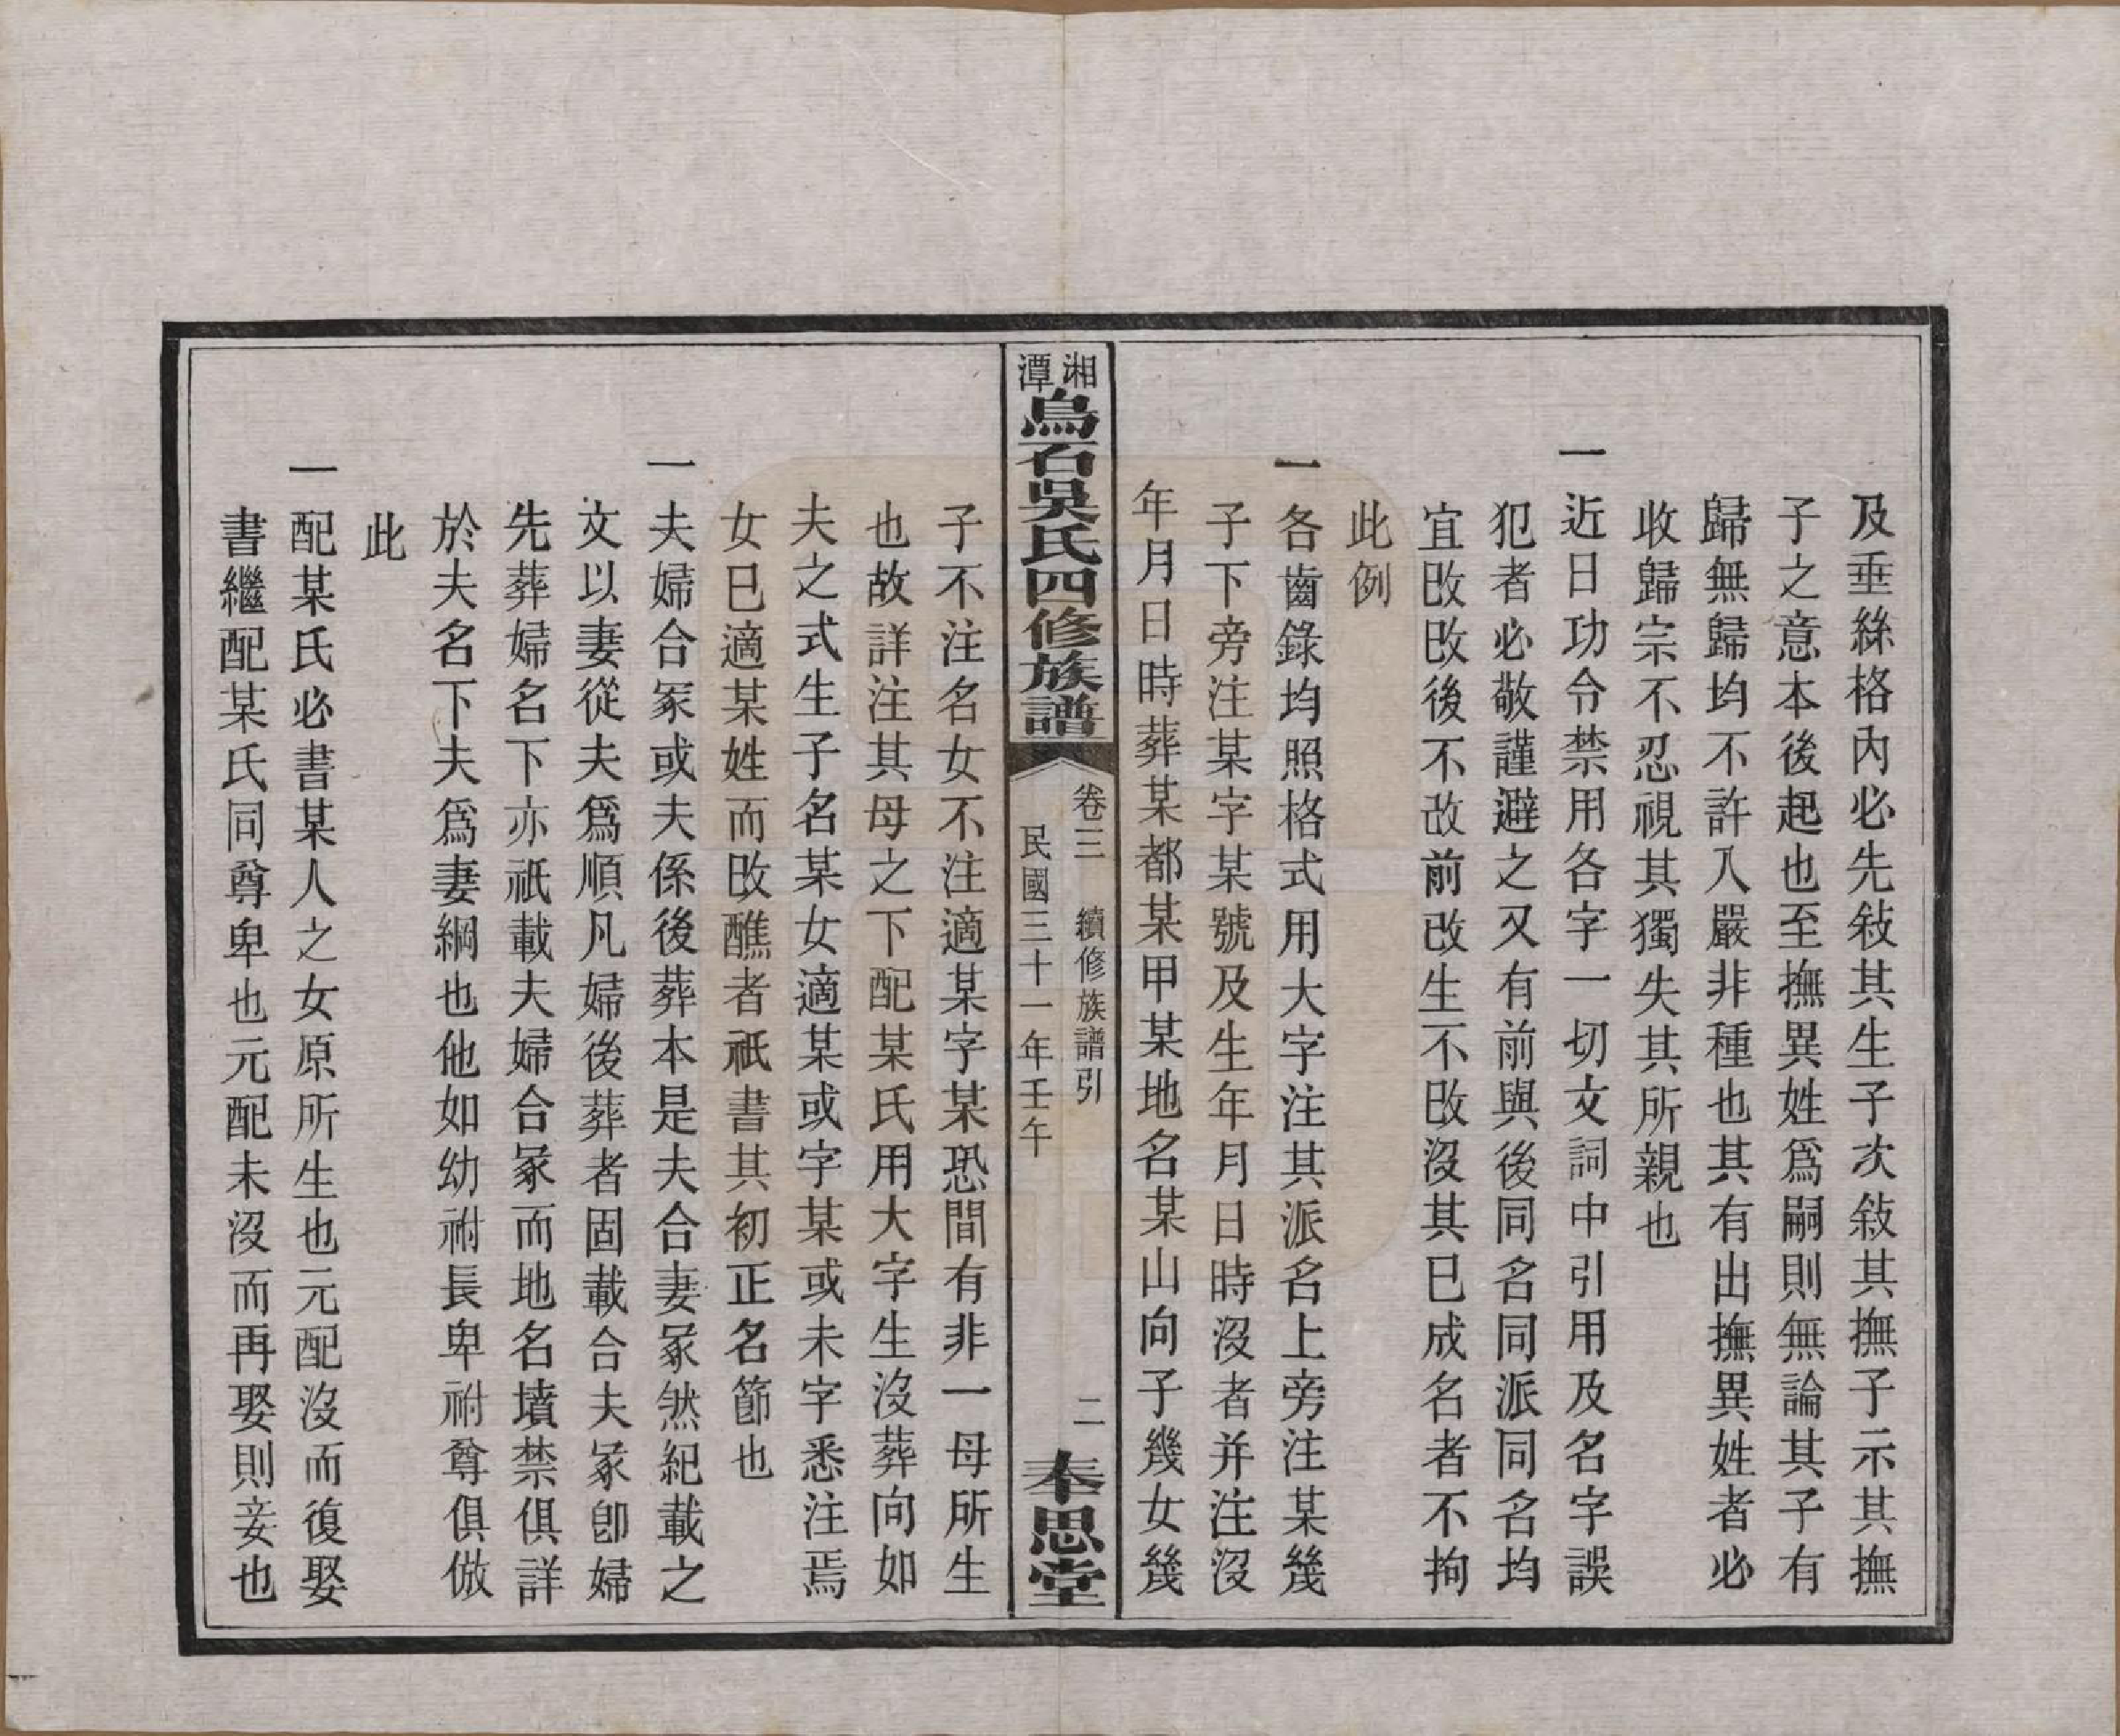 及垂絲格內必先敍其生子次敍其撫子示其撫
子之意本後起也至撫異姓爲嗣則無論其子有
歸無歸均不許入嚴非種也其有出撫異姓者必
收歸宗不忍視其獨失其所親也
一近日功令禁用各字一切文詞中引用及名字誤
犯者必敬謹避之又有前與後同名同派同名均
宜改改後不改前改生不改沒其已成名者不拘
此例
一各齒錄均照格式用大字注其派名上旁注某幾
子下旁注某字某號及生年月日時沒者并注沒
年月日時葬某都某甲某地名某山向子幾女幾
湘潭烏石吳氏四修族譜
卷三 續修族譜引
民國三十一年壬午
二
奉思堂
子不注名女不注適某字某恐間有非一母所生
也故詳注其母之下配某氏用大字生沒葬向如
夫之式生子名某女適某或字某或未字悉注焉
女已適某姓而改醮者祇書其初正名節也
一夫婦合冢或夫係後葬本是夫合妻冢然紀載之
文以妻從夫爲順凡婦後葬者固載合夫冢卽婦
先葬婦名下亦祇載夫婦合冢而地名墳禁俱詳
於夫名下夫爲妻綱也他如幼祔長卑祔尊俱倣
此
一配某氏必書某人之女原所生也元配沒而復娶
書繼配某氏同尊卑也元配未沒而再娶則妾也